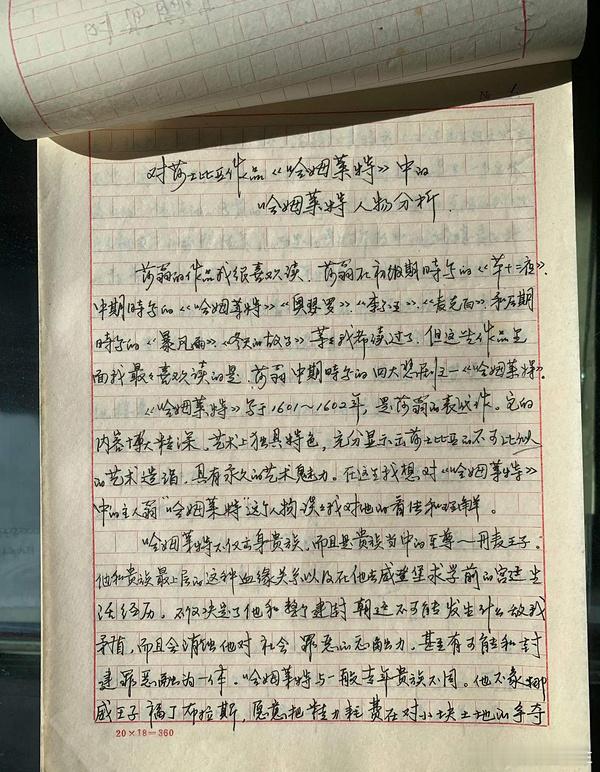 对莎士比亚作品《哈姆莱特》中的
哈姆莱特人物分析.
莎翁的作品我很喜欢读.莎翁在初级期时写的《第十二夜》.
中期时写的《哈姆莱特》《奥瑟罗》.《李尔王》.《麦克白》.和后期
时写的《暴风雨》《冬天的故事》等等我都读过了.但这些作品里
面我最最喜欢读的是.莎翁中期时写的四大悲剧之一《哈姆莱特》.
《哈姆莱特》写于1601～1602年,是莎翁的代表作.它的
内容博大精深,艺术上独具特色,充分显示出莎士比亚的不可比拟
的艺术造诣,具有永久的艺术魅力.在这里我想对《哈姆莱特》
中的主人翁"哈姆莱特"这个人物谈谈我对他的看法和理解。
哈姆莱特不仅出身贵族,而且是贵族当中的至尊～丹麦王子.
他和贵族最上层的这种血缘关系以及在他去威登堡求学前的宫廷生
活经历.不仅决定了他和整个封建朝廷不可能发生什么敌我
矛盾,而且会消蚀他对社会罪恶的感triangle力,甚至有可能和封
建罪恶融为一体.哈姆莱特与一般青年贵族不同。他不象挪
威王子福丁布拉斯,愿意把精力耗费在对小块土地的争夺
20×18=360